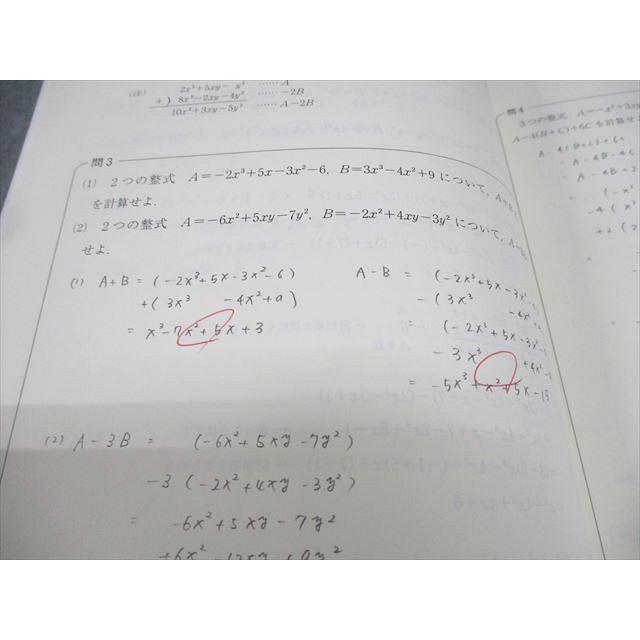 (注) 2x³+5xy−y² ……A
+) 8x²−2xy−4y² ……−2B
10x²+3xy−5y² ……A−2B
問3
(1) 2つの整式 A=−2x³+5x−3x²−6, B=3x³−4x²+9 について,
を計算せよ.
(2) 2つの整式 A=−6x²+5xy−7y², B=−2x²+4xy−3y² について,
せよ.
(1) A+B = (−2x³+5x−3x²−6)
+(3x³ −4x²+9)
= x³−7x²+5x+3
A−B = (−2x³+5x−3x²
−(3x³ −4x²
= (−2x³+5x−3x²
−3x³ +4x²
= −5x³+x²+5x−15
(2) A−3B = (−6x²+5xy−7y²)
−3(−2x²+4xy−3y²)
= −6x²+5xy−7y²
+6x²−12xy+9y²
問4
3つの整式 A=−x²+3xy
A−4(B+C)+6C を計算せよ
A−4(B+C)+6C
= A−4B−4C
= A−4B+2
= (−x²
−4(x²
+2(2